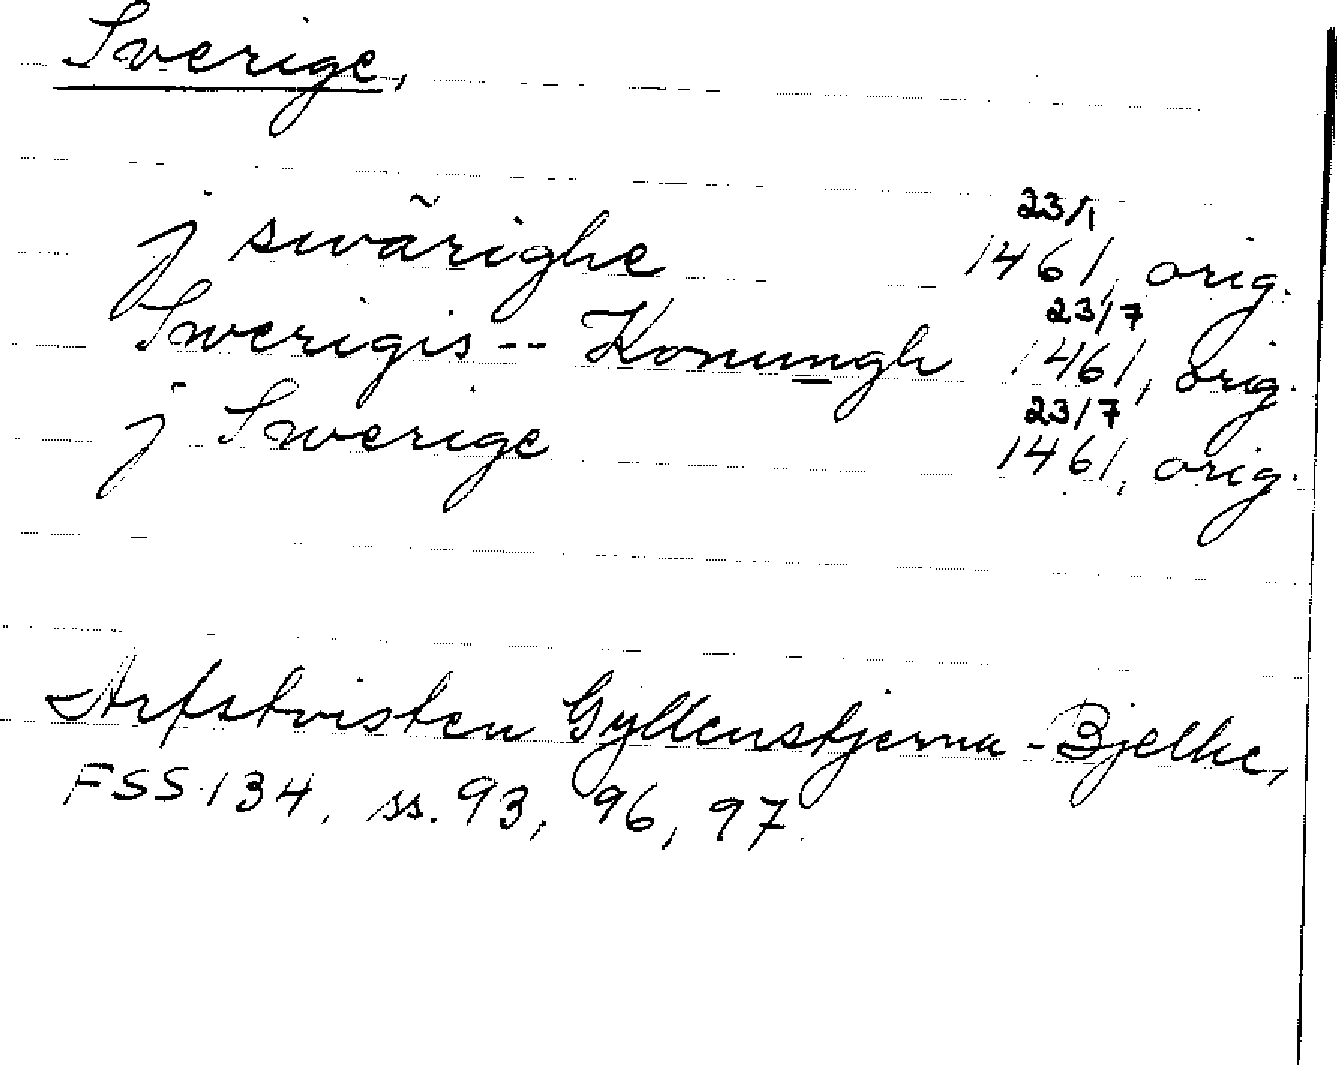 Sverige,
j swärighe 23/1 1461, orig.
Swerigis -- Konungh 23/7 1461, orig.
j Swerige 23/7 1461, orig.
Arfstvisten Gyllenstjerna-Bjelke,
FSS 134, ss. 93, 96, 97.